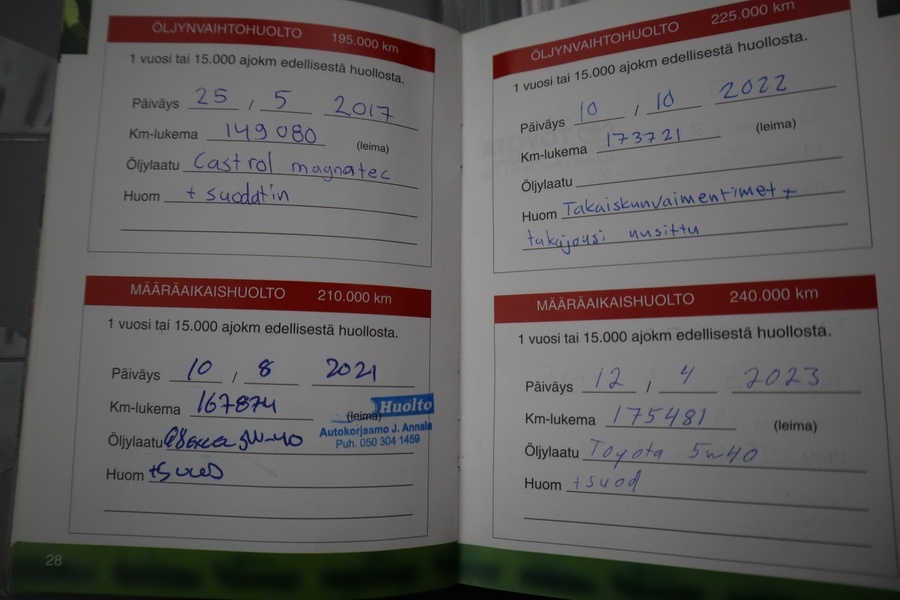 ÖLJYNVAIHTOHUOLTO 195.000 km
1 vuosi tai 15.000 ajokm edellisestä huollosta.
Päiväys 25 / 5 2017
Km-lukema 149 080 (leima)
Öljylaatu Castrol magnatec
Huom + suodatin
MÄÄRÄAIKAISHUOLTO 210.000 km
1 vuosi tai 15.000 ajokm edellisestä huollosta.
Päiväys 10 / 8 2021
Km-lukema 167874 (leima)
Huolto
Autokorjaamo J. Annala
Puh. 050 304 1459
Öljylaatu 5W-40
Huom
28
ÖLJYNVAIHTOHUOLTO 225.000 km
1 vuosi tai 15.000 ajokm edellisestä huollosta.
Päiväys 10 / 10 2022
Km-lukema 173721 (leima)
Öljylaatu
Huom Takaiskunvaimentimet +
takajousi uusittu
MÄÄRÄAIKAISHUOLTO 240.000 km
1 vuosi tai 15.000 ajokm edellisestä huollosta.
Päiväys 12 / 4 2023
Km-lukema 175481 (leima)
Öljylaatu Toyota 5w40
Huom +suod